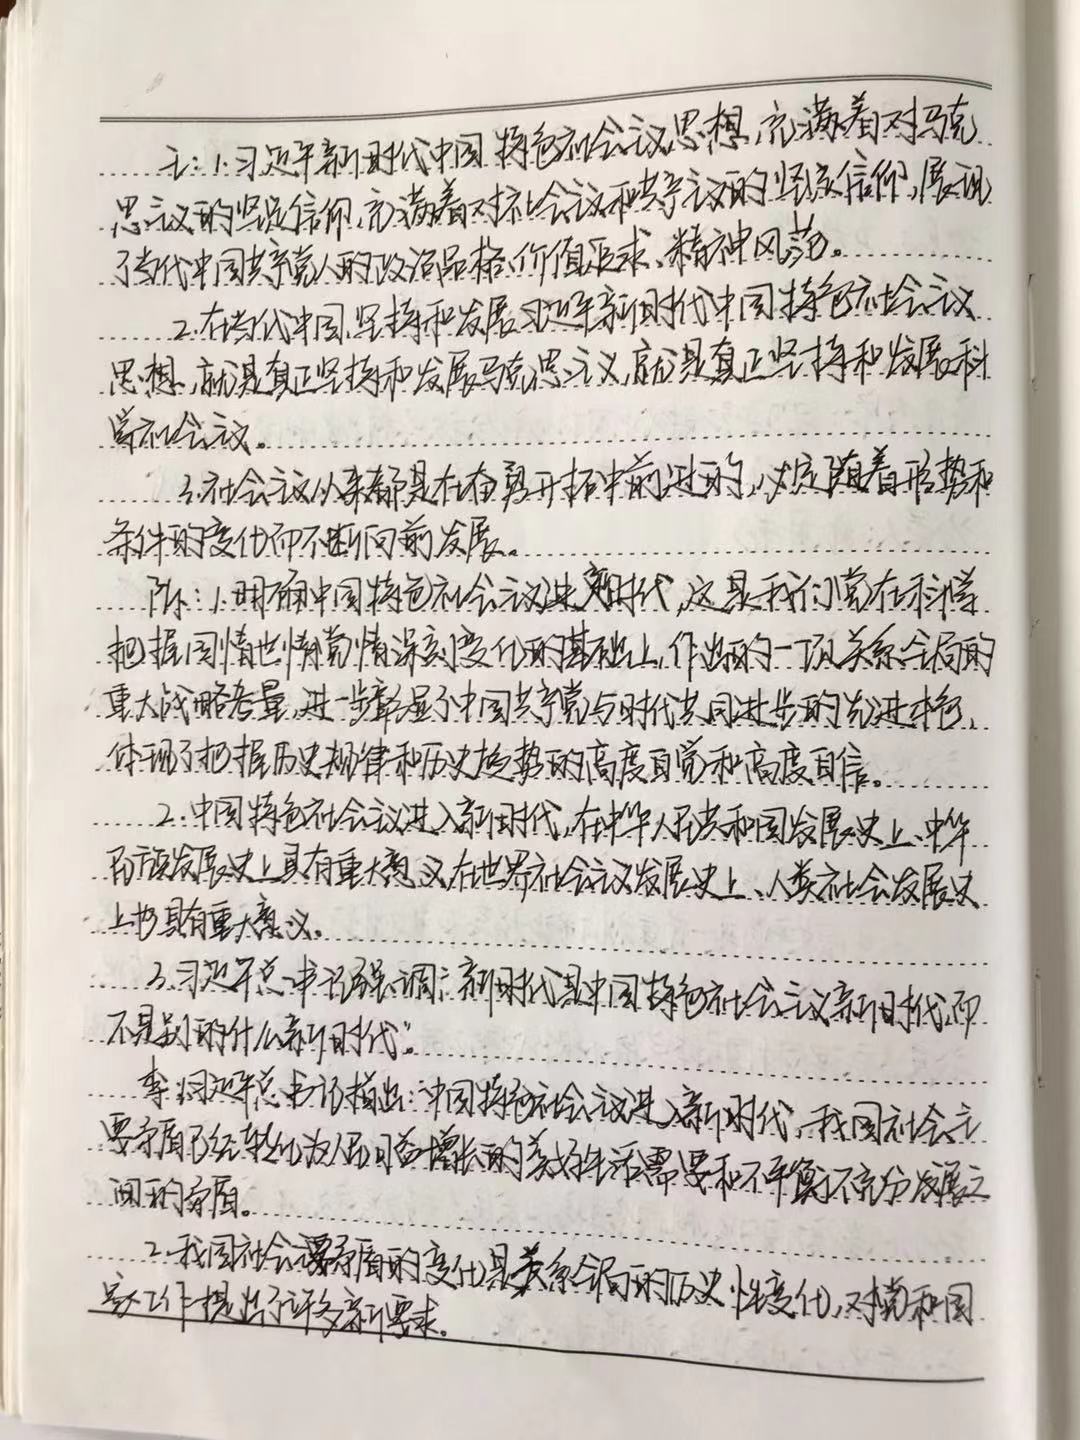 王:1.习近平新时代中国特色社会主义思想,充满着对马克
思主义的坚定信仰,充满着对社会主义和共产主义的坚定信仰,展现
了当代中国共产党人的政治品格、价值追求、精神风范。
2.在当代中国,坚持和发展习近平新时代中国特色社会主义
思想,就是真正坚持和发展马克思主义,就是真正坚持和发展科
学社会主义。
3.社会主义从来都是在奋勇开拓中前进的,必定随着形势和
条件的变化而不断向前发展。
陈:1.明确中国特色社会主义进入新时代,这是我们党在科学
把握国情世情党情深刻变化的基础上,作出的一项关系全局的
重大战略考量,进一步彰显了中国共产党与时代共同进步的先进本色,
体现了把握历史规律和历史趋势的高度自觉和高度自信。
2.中国特色社会主义进入新时代,在中华人民共和国发展史上、中华
民族发展史上具有重大意义,在世界社会主义发展史上、人类社会发展史
上也具有重大意义。
3.习近平总书记强调:新时代是中国特色社会主义新时代,而
不是别的什么新时代”。
李:1.习近平总书记指出:中国特色社会主义进入新时代,我国社会主
要矛盾已经转化为人民日益增长的美好生活需要和不平衡不充分发展之
间的矛盾。
2.我国社会主要矛盾的变化是关系全局的历史性变化,对党和国
家工作提出了许多新要求。